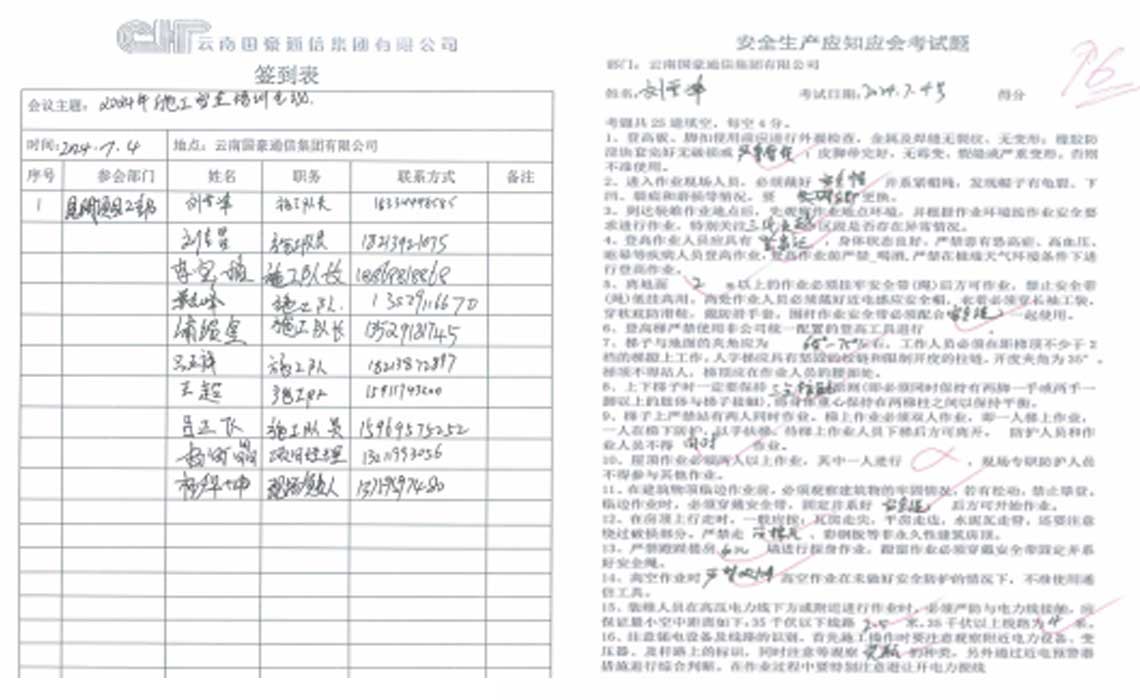 云南国豪通信集团有限公司
签到表
会议主题：2024年施工安全培训
时间:2024.7.4 地点：云南国豪通信集团有限公司
序号 参会部门 姓名 职务 联系方式 备注
1
施工队员 18213921075
施工队长
施工队. 13529116670
施工队长 13529121745
施工队 18213872897
王超 施工队 15911743200
施工队员 15969575252
项目经理
安全生产应知应会考试题
部门：云南国豪通信集团有限公司
姓名: 考试日期:2024.7.4号 得分 96
考题共25道填空，每空4分。
1、登高板、脚扣使用前应进行外观检查，金属及焊缝无裂纹、无变形；橡胶防
滑块套完好无破损或 ；皮脚带完好，无霉变、裂缝或严重变形，否则
不准使用。
2、进入作业现场人员，必须戴好 安全帽 并系紧帽绳，发现帽子有龟裂、下
凹、裂痕和磨损等情况，要 立即 更换。
3、到达装维作业地点后，先观察作业地点环境，并根据作业环境的作业安全要
求进行作业，特别关注 区段是否存在异常情况。
4、登高作业人员应具有 登高证 ，身体状态良好。严禁患有恐高症、高血压、
眩晕等疾病人员登高作业，登高作业前严禁 喝酒，严禁在极端天气环境条件下进
行登高作业。
5、离地面 2 m以上的作业必须挂牢安全带(绳)后方可作业，禁止安全带
(绳)低挂高用。高处作业人员必须戴好近电感应安全帽，并要必须穿长袖工装、
穿软底防滑鞋、戴防滑手套，围杆作业安全带必须配合 安全绳 一起使用。
6、登高梯严禁使用非公司统一配置的登高工具进行
7、梯子与地面的夹角应为 65°-75°左右，工作人员必须在距梯顶不少于2
档的梯蹬上工作，人字梯应具有坚固的铰链和限制开度的拉链，开度夹角为35°。
梯顶不得站人，梯顶应在作业人员的腰部处。
8、上下梯子时一定要保持 三点接触 原则(即必须同时保持有两脚一手或两手一
脚以上的肢体与梯子接触)，将身体重心保持在两梯柱之间以保持平衡。
9、梯子上严禁站有两人同时作业。梯上作业必须双人作业，即一人梯上作业，
一人在梯下防护，以手扶梯，待梯上作业人员下梯后方可离开。 防护人员和作
业人员不得 同时 作业。
10、屋顶作业必须两人以上作业，其中一人进行 ，现场专职防护人员
不得参与其他作业。
11、在建筑物顶临边作业前，必须观察建筑物的牢固情况，若有松动，禁止攀登。
临边作业时，必须穿戴安全带，固定并系好 安全绳 后方可开始作业。
12、在房顶上行走时，一般应按：瓦房走尖，平房走边，水泥瓦走带，还要注意
绕过破损部分。严禁走 石棉瓦 、彩钢板等非永久性建筑房顶。
13、严禁蹬踩楼房 墙进行探身作业。跟窗作业必须穿戴安全带固定并系
好安全绳。
14、高空作业时 高空作业在未做好安全防护的情况下，不准使用通
信工具。
15、装维人员在高压电力线下方或附近进行作业时，必须严防与电力线接触，应
保证最小空中距离如下：35千伏以下线路 2.5 米，35千伏以上线路为 4 米。
16、注意强电设备及线路的识别。首先施工操作时要注意观察附近电力设备、变
压器、及杆路上的标识，同时注意等观察 的种类，另外通过近电预警器
措施进行综合判断。在作业过程中要特别注意避让开电力接线